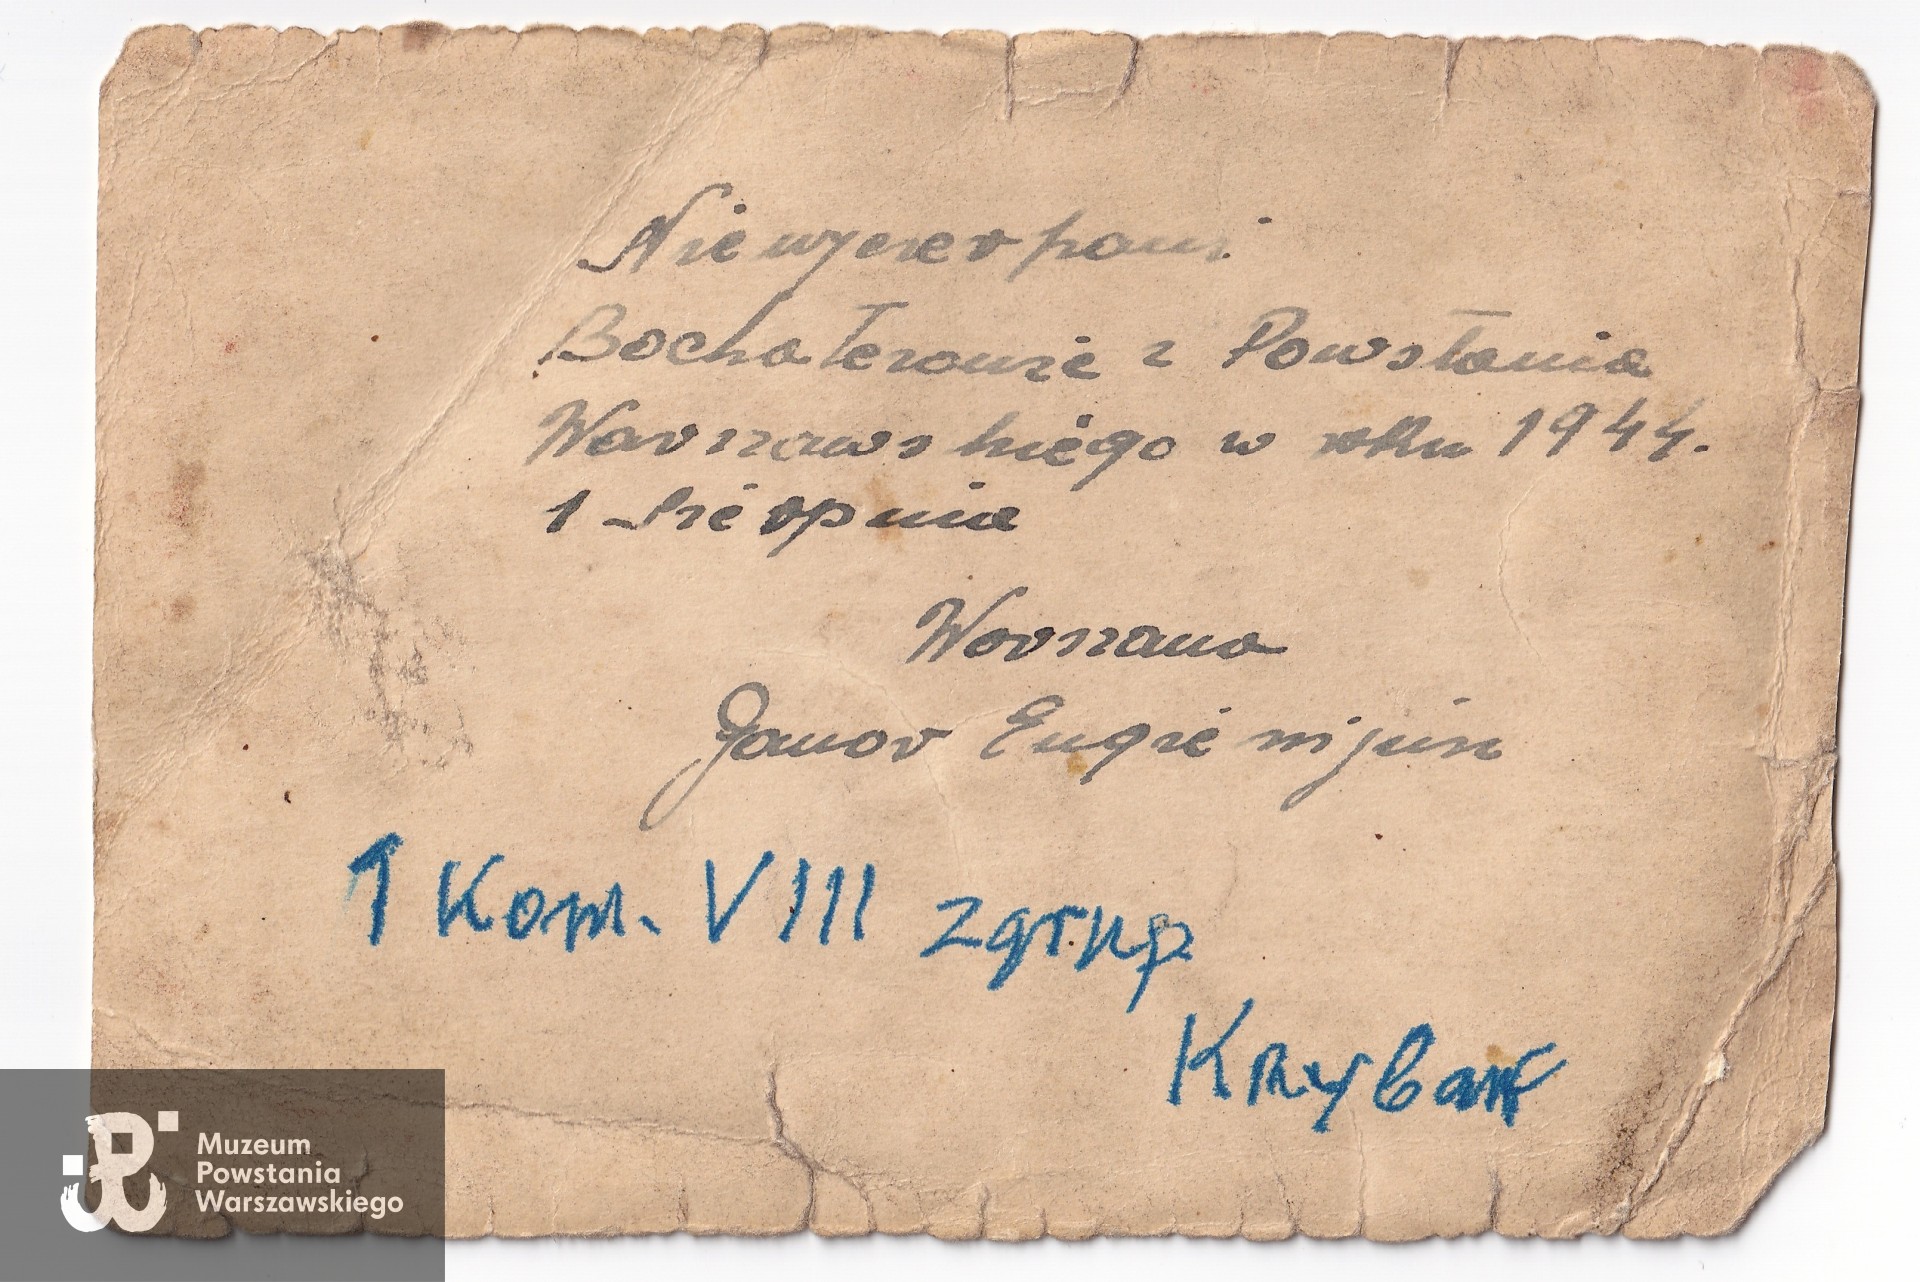 Niewyczerpani
Bochaterowie z Powstania
Warszawskiego w roku 1944.
1 Sierpnia
Warszawa
Eugienijusz
1 Komp. VIII zgrup
Krybar
Muzeum
Powstania
Warszawskiego